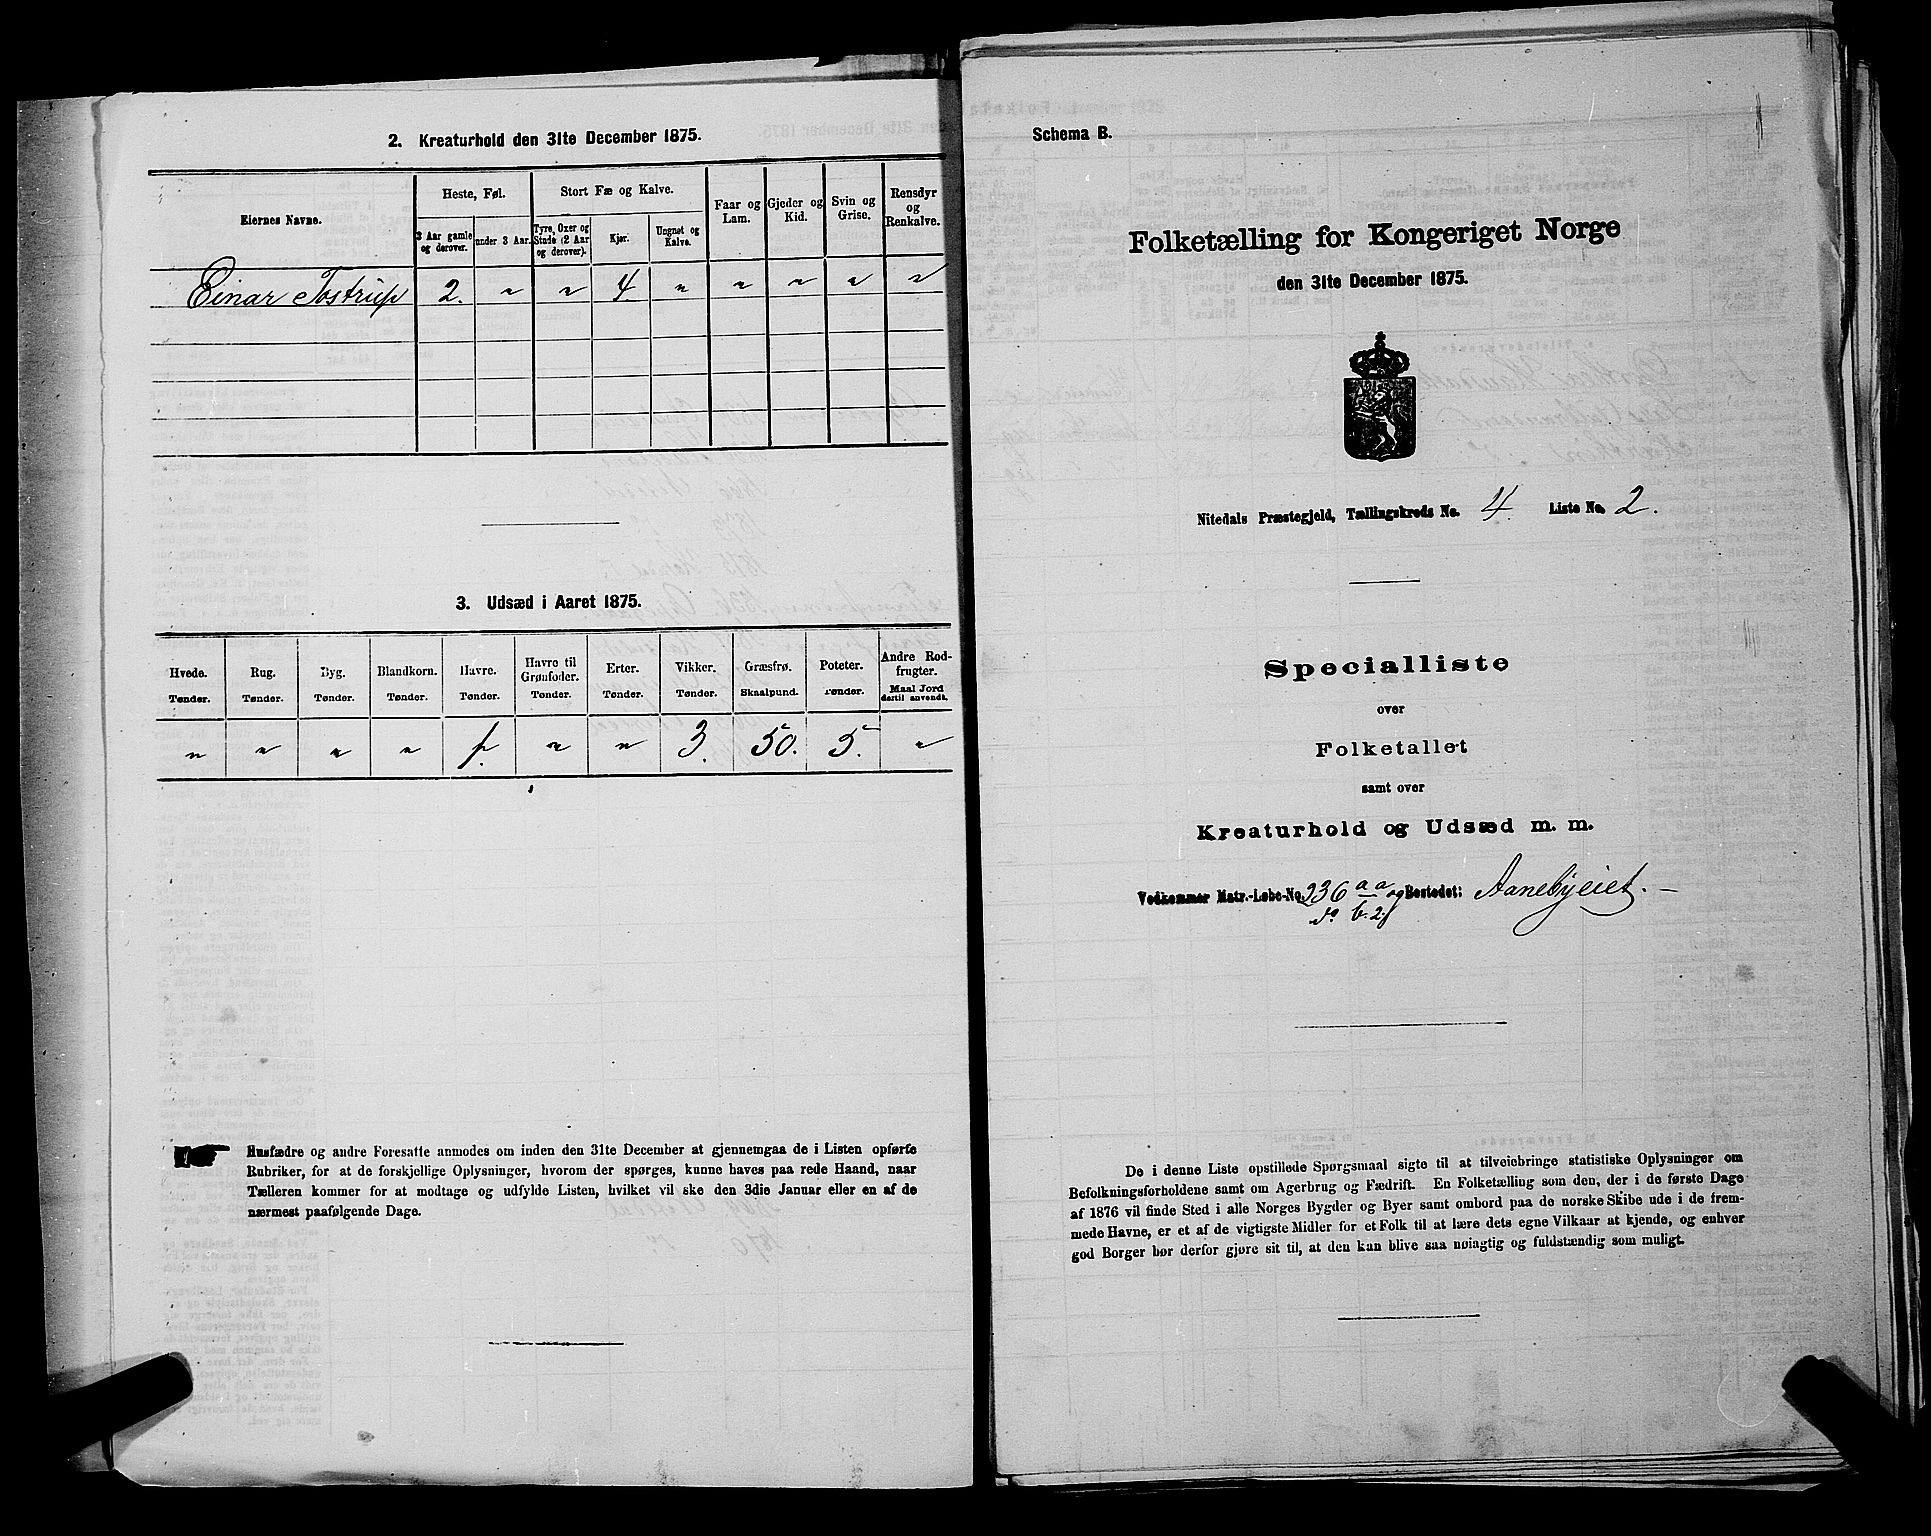 2. Kreaturhold den 31te December 1875.
Eiernes Navne.
Heste, Føl.
Stort Fæ og Kalve.
Faar og Lam.
Gjeder og Kid.
Svin og Grise.
Rensdyr og Renkalve.
3 Aar gamle og derover.
under 3 Aar.
Tyre, Oxer og Stude (2 Aar og derover).
Kjør.
Ungnøt og Kalve.
Einar Tostrup 2. " " 4 " " " " "
3. Udsæd i Aaret 1875.
Hvede. Rug. Byg. Blandkorn. Havre. Havre til Grønfoder. Erter. Vikker. Græsfrø. Poteter. Andre Rodfrugter.
Tønder. Tønder. Tønder. Tønder. Tønder. Tønder. Tønder. Tønder. Skaalpund. Tønder. Maal Jord dertil anvendt.
" " " " " " 3. 50. 5. "
Husfædre og andre Foresatte anmodes om inden den 31te December at gjennemgaa de i Listen opførte
Rubriker, for at de forskjellige Oplysninger, hvorom der spørges, kunne haves paa rede Haand, naar
Tælleren kommer for at modtage og udfylde Listen, hvilket vil ske den 3die Januar eller en af de
nærmest paafølgende Dage.
Schema B.
Folketælling for Kongeriget Norge
den 31te December 1875.
Nitedals Præstegjeld, Tællingskreds No. 4. Liste No. 2.
Specialliste
over
Folketallet
samt over
Kreaturhold og Udsæd m. m.
Vedkommer Matr.-Løbe-No. 236 aa og Bostedet: Aanebyeiet.
do b. 2
De i denne Liste opstillede Spørgsmaal sigte til at tilveiebringe statistiske Oplysninger om
Befolkningsforholdene samt om Agerbrug og Fædrift. En Folketælling som den, der i de første Dage
af 1876 vil finde Sted i alle Norges Bygder og Byer samt ombord paa de norske Skibe ude i de frem-
mede Havne, er et af de vigtigste Midler for et Folk til at lære dets egne Vilkaar at kjende, og enhver
god Borger bør derfor gjøre sit til, at den kan blive saa nøiagtig og fuldstændig som muligt.